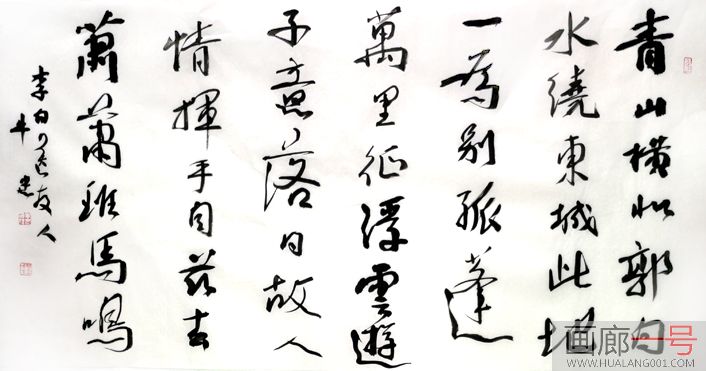 青山橫北郭白
水繞東城此地
一為別孤蓬
萬里征浮雲遊
子意落日故人
情揮手自茲去
蕭蕭班馬鳴
李白の送友人
画廊一号
WWW.HUALANG001.COM